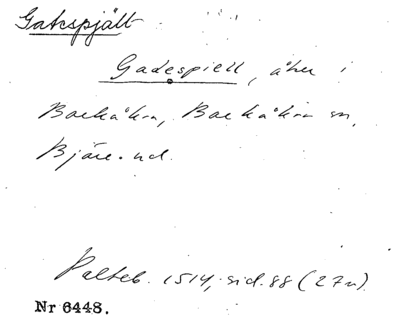 Gatespjält
Gadespiell, åker i
Backåkra, Backåkra sn,
Bjäre hd.
Palteb. 1514, sid. 88 (27 v).
Nr 6448.